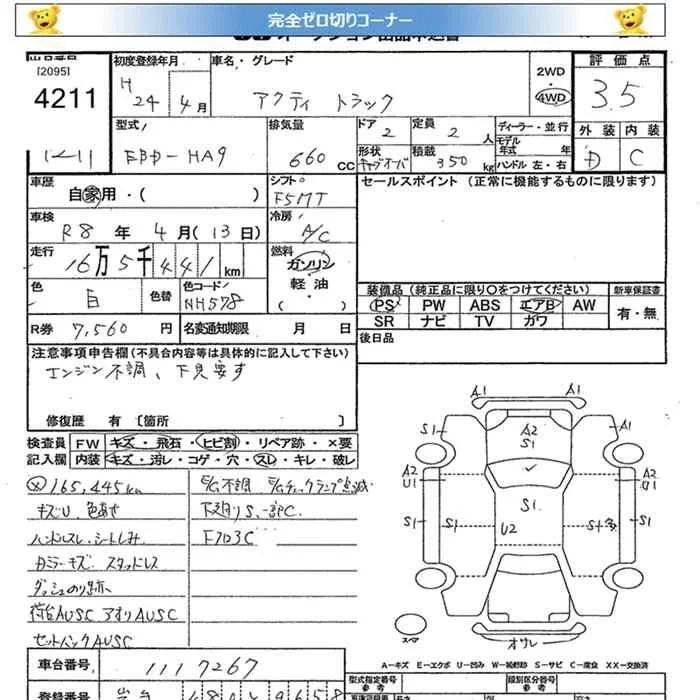 完全ゼロ切りコーナー
出品番号 初度登録年月 車名・グレード 評価点
[2095]
4211
H 24年 4月
アクティ トラック
2WD
・
4WD
3.5
型式 排気量 ドア 定員 ディーラー・並行 外装 内装
EBD-HA9 660 CC 2 2人
モデル年式 年
形状 積載
キャブオーバ 350kg
ハンドル 左・右
D C
12-11
車歴 シフト セールスポイント (正常に機能するものに限ります)
自家用・( ) F5MT
車検 冷房
R8年 4月(13日) A/C
走行 燃料
16万5千441km ガソリン
軽油
・
( )
色 色替 色コード
白 NH578
装備品(純正品に限り○をつけてください) 新車保証書
PS PW ABS エアB AW 有・無
SR ナビ TV カワ
R券 7,560円 名変通知期限 月 日
後日品
注意事項申告欄(不具合内容等は具体的に記入して下さい)
エンジン不調、下見要す
修復歴 有 〔箇所 〕
検査員 FW キズ・飛石・ヒビ割・リペア跡・×要
記入欄 内装 キズ・汚レ・コゲ・穴・スレ・キレ・破レ
165,445km
キズU、色あせ
ハンドルスレ、シートしみ
カミラーキズ スタッドレス
ダッシュのり跡
荷台AUSC アオリAUSC
セットバックAUSC
E/G不調 E/Gチェックランプ点滅
下廻りS、一部C
Fフロ3C
A1 A1
S1 A2 S1 A1
A2 U1 A2 B1
S1 S1 S1 S1
U2
スペア
オワレ
A-キズ E-エクボ U-凹み W-補修跡 S-サビ C-腐食 XX-交換済
車台番号 1117267
型式指定番号 参考 類別区分番号 参考
登録番号 岩手 480 9658